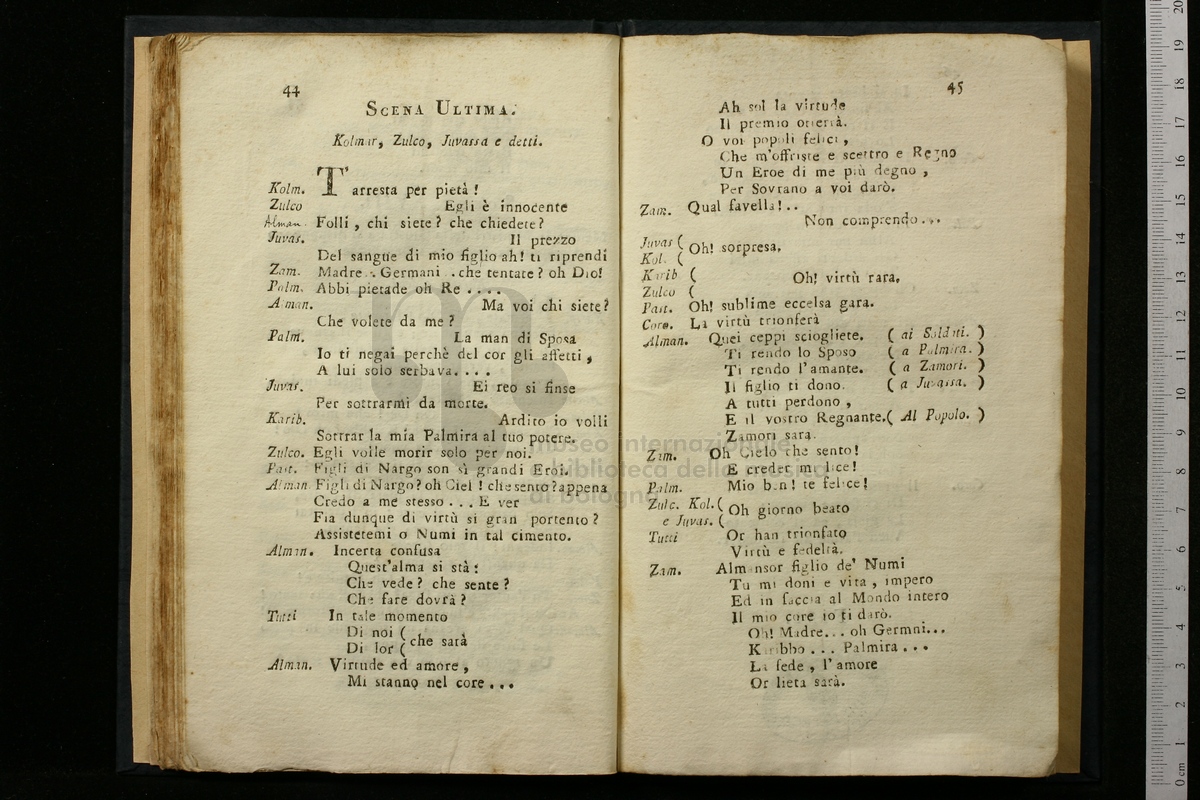 44
SCENA ULTIMA.
Kolmar, Zulco, Juvassa e detti.
Kolm. T'arresta per pietà!
Zulco Egli è innocente
Alman. Folli, chi siete? che chiedete?
Juvas. Il prezzo
Del sangue di mio figlio ah! ti riprendi
Zam. Madre .. Germani .. che tentate? oh Dio!
Palm. Abbi pietade oh Re ....
Alman. Ma voi chi siete?
Che volete da me?
Palm. La man di Sposa
Io ti negai perchè del cor gli affetti,
A lui solo serbava....
Juvas. Ei reo si finse
Per sottrarmi da morte.
Karib. Ardito io volli
Sottrar la mia Palmira al tuo potere.
Zulco. Egli volle morir solo per noi.
Part. Figli di Nargo son sì grandi Eroi.
Alman Figli di Nargo? oh Ciel! che sento? appena
Credo a me stesso... E ver
Fia dunque di virtù si gran portento?
Assistetemi o Numi in tal cimento.
Alman. Incerta confusa
Quest'alma si stà:
Che vede? che sente?
Che fare dovrà?
Tutti In tale momento
Di noi (
Di lor ( che sarà
Alman. Virtude ed amore,
Mi stanno nel core...
45
Ah sol la virtude
Il premio otterrà.
O voi popoli felici,
Che m'offriste e scettro e Regno
Un Eroe di me più degno,
Per Sovrano a voi darò.
Zam. Qual favella!..
Non comprendo...
Juvas (
Kol. ( Oh! sorpresa.
Karib ( Oh! virtù rara.
Zulco (
Part. Oh! sublime eccelsa gara.
Coro. La virtù trionferà
Alman. Quei ceppi sciogliete. ( ai Soldati. )
Ti rendo lo Sposo ( a Palmira. )
Ti rendo l'amante. ( a Zamori. )
Il figlio ti dono. ( a Juvassa. )
A tutti perdono,
E il vostro Regnante. ( Al Popolo. )
Zamori sarà.
Zam. Oh Cielo che sento!
E creder mi lice!
Palm. Mio ben! te felice!
Zulc. Kol. (
e Juvas. ( Oh giorno beato
Tutti Or han trionfato
Virtù e fedeltà.
Zam. Almansor figlio de' Numi
Tu mi doni e vita, impero
Ed in faccia al Mondo intero
Il mio core io ti darò.
Oh! Madre... oh Germni...
Karibbo... Palmira...
La fede, l'amore
Or lieta sarà.
museo internazionale
e biblioteca della musica
di bologna
0 cm 1 2 3 4 5 6 7 8 9 10 11 12 13 14 15 16 17 18 19 20